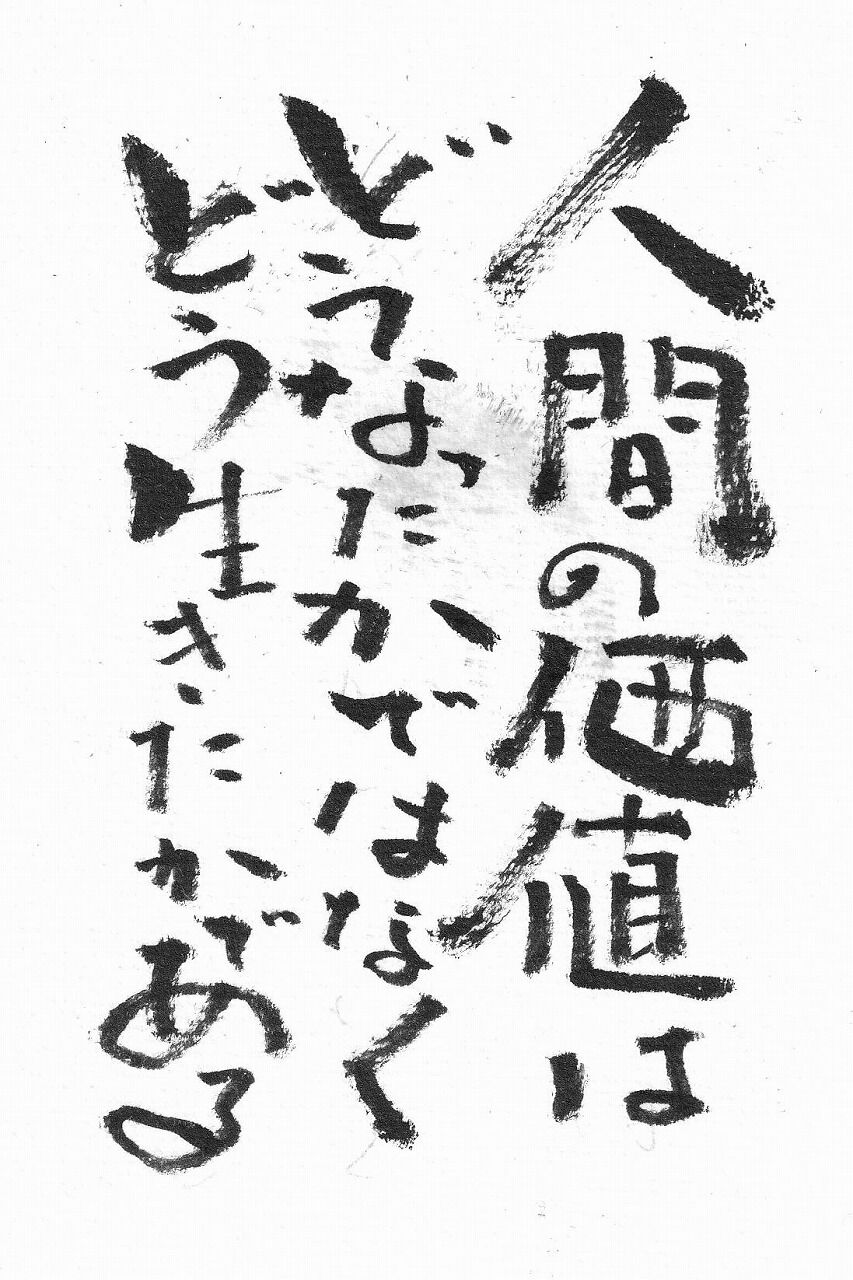 人間の価値は
どうなったかではなく
どう生きたかである